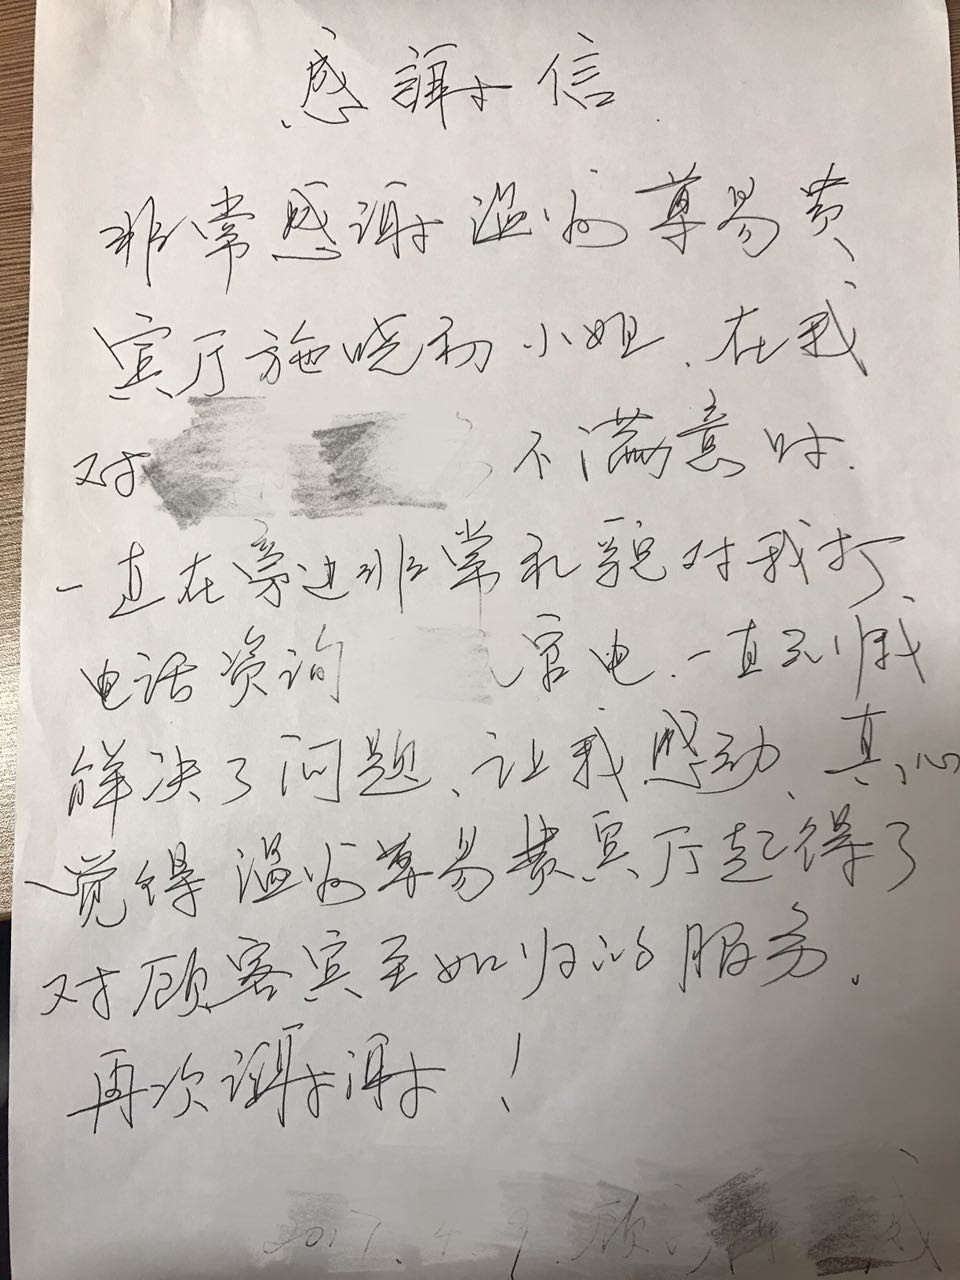 感谢信
非常感谢温州尊易贵
宾厅施晓初小姐.在我
对 不满意时.
一直在旁边非常礼貌对我打
电话资询 官电.一直到我
解决了问题、让我感动、真心
觉得温州尊易贵宾厅起得了
对顾客宾至如归的服务.
再次谢谢!
2017.4.9.顾